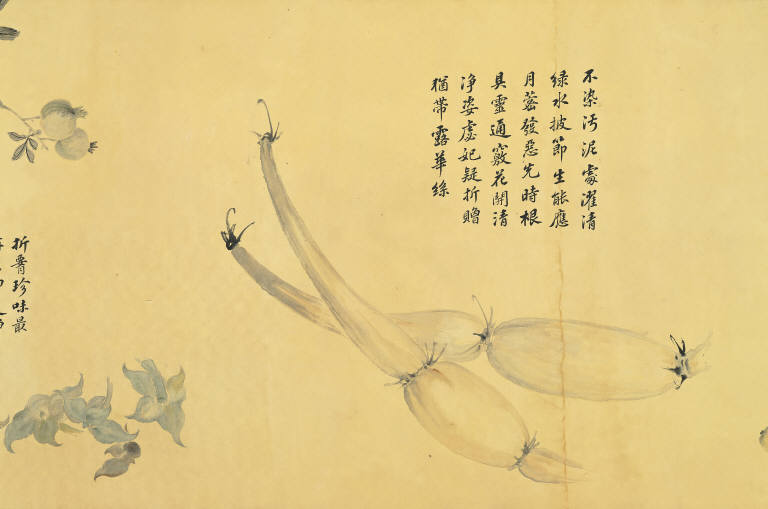 不染汚泥處濯清
緑水披節生能應
月發惡先時根
具靈通竅花開清
淨姿虙妃疑折贈
猶帶露華絲
折珍味最